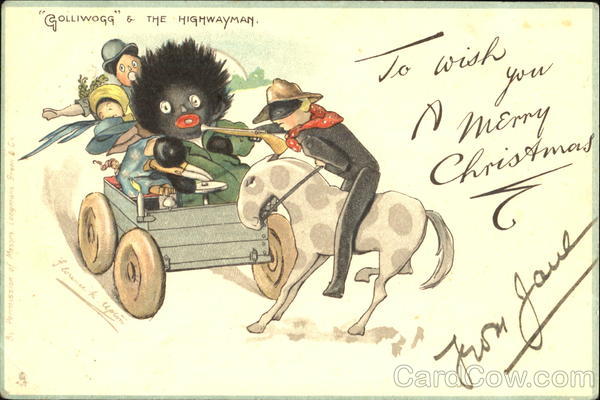 "GOLLIWOGG" & THE HIGHWAYMAN.
To wish
you
A Merry
Christmas
from Jane
Florence K Upton
By Permission of Messrs Longmans Green & Co.
CardCow.com